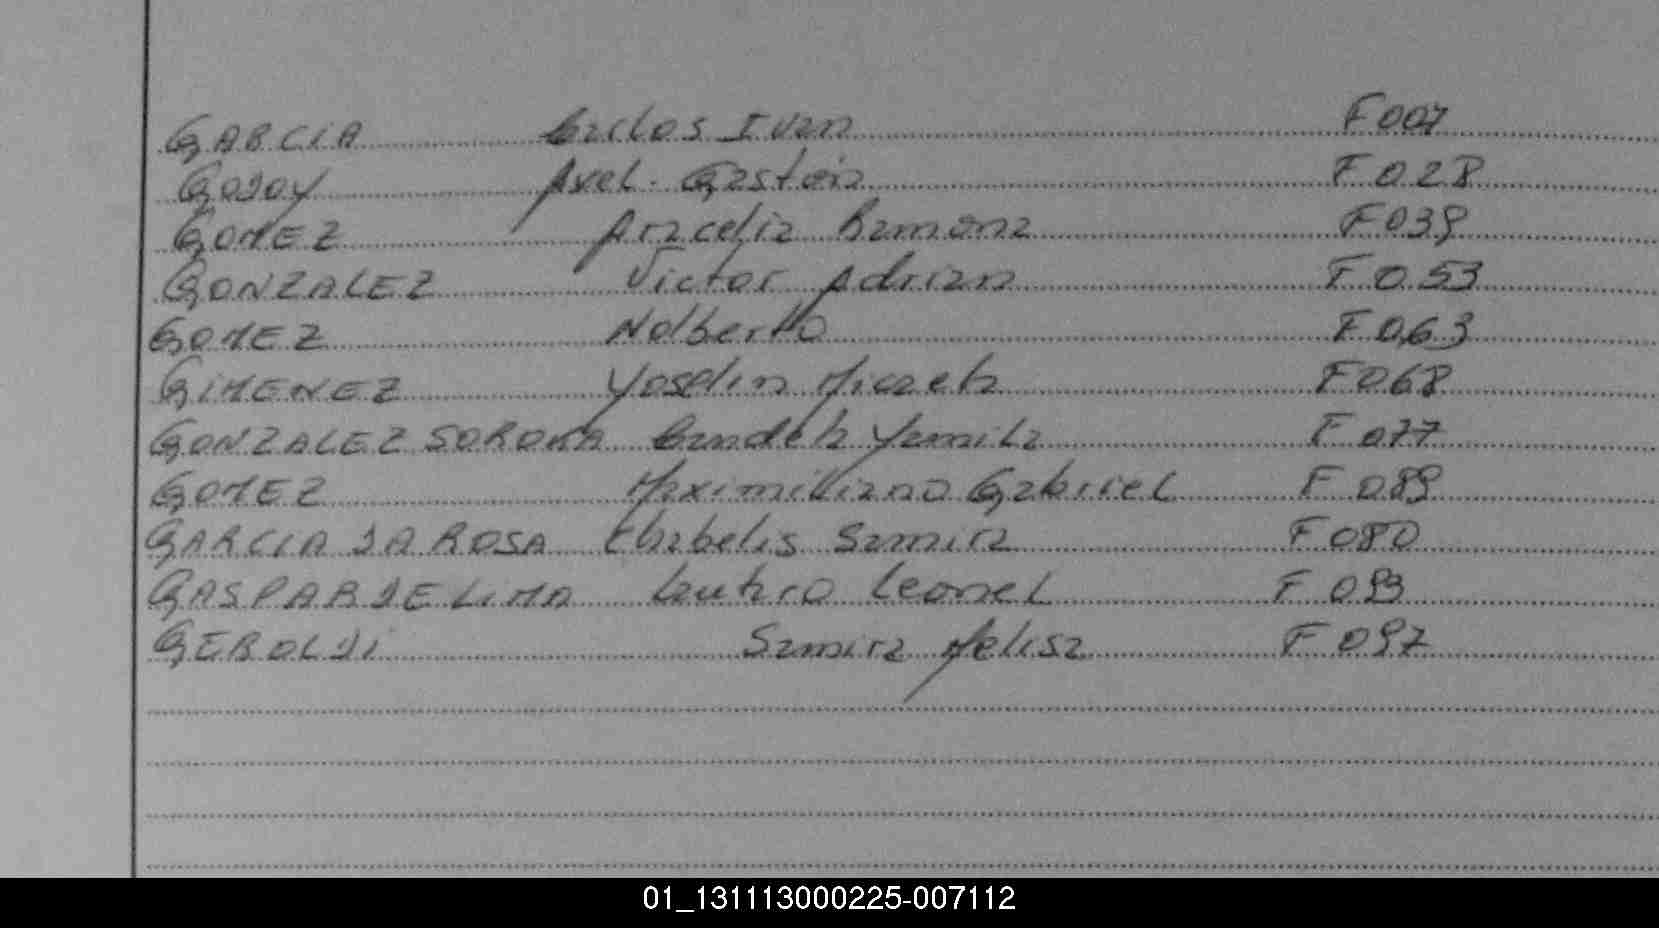 GARCIA Carlos Ivan F007
GODOY Axel Gaston F028
GOMEZ Aracelia Ramona F039
GONZALEZ Victor Adrian F053
GOMEZ Nolberto F063
GIMENEZ Yoselin Micaela F068
GONZALEZ SOROKA Candela Yamila F077
GOMEZ Maximiliano Gabriel F089
GARCIA DA ROSA Samira F080
GASPAR DE LIMA Lautaro Leonel F093
GEROLDI Samira Melisa F097
01_131113000225-007112